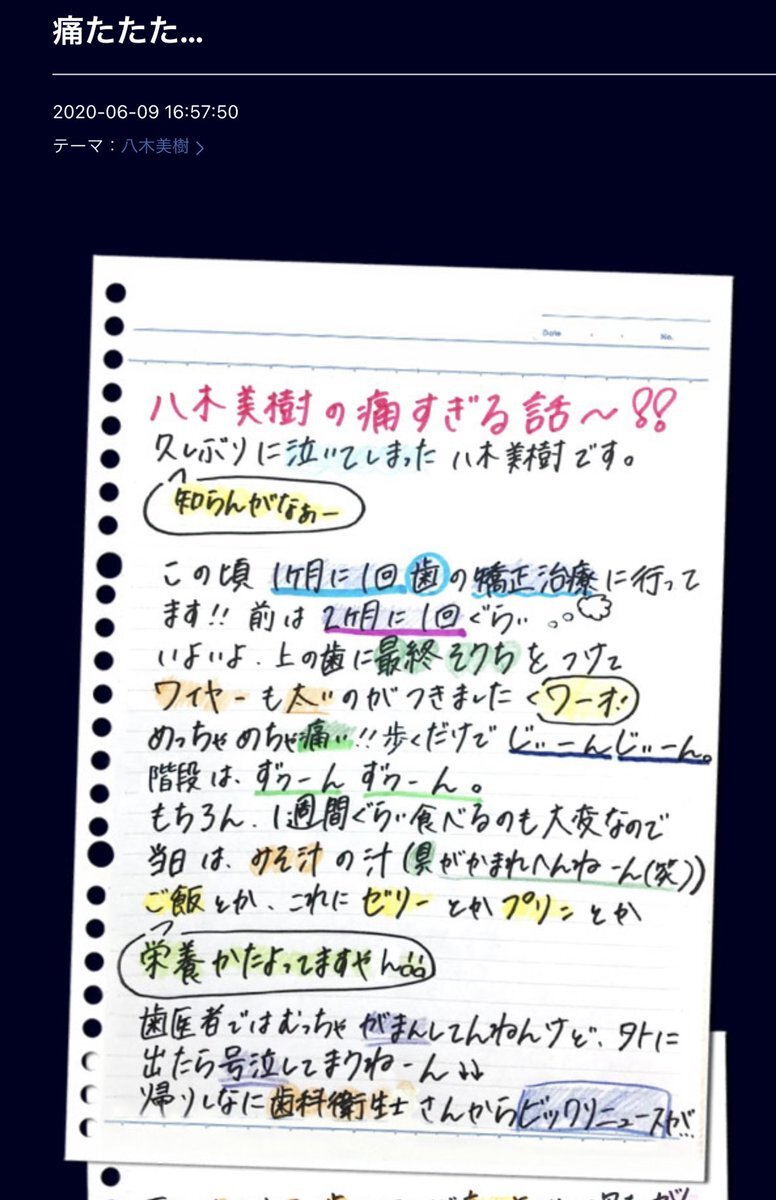 痛たたた…
2020-06-09 16:57:50
テーマ：八木美樹 >
Date ・ ・ No.
八木美樹の痛すぎる話〜!!
久しぶりに泣いてしまった八木美樹です。
知らんがなぁー
この頃1ヶ月に1回歯の矯正治療に行って
ます!!前は2ヶ月に1回ぐらい…
いよいよ、上の歯に最終そうちをつけて
ワイヤーも太いのがつきました<ワーオ!
めっちゃめちゃ痛い!!歩くだけでじぃーんじぃーん。
階段は、ずぅーんずぅーん。
もちろん、1週間ぐらい食べるのも大変なので
当日は、みそ汁の汁(具がかまれへんねーん(笑))
ご飯とか、これにゼリーとかプリンとか
栄養かたよってますやん
歯医者ではむっちゃがまんしてんねんけど、外に
出たら号泣してまうねーん↓↓
帰りしなに歯科衛生士さんからビックリニュースが!!